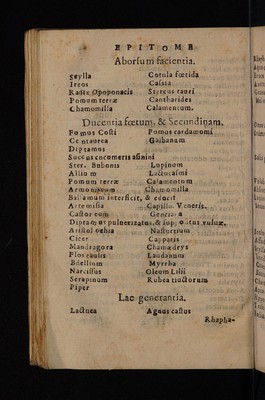 EPITOME
Aborsum facientia.
Scylla Cotula fœtida
Ireos Casita
Radix Opoponacis Stercus tauri
Pomum terræ Cantharides
Chamomilla Calamentum.
Ducentia fœtum, & Secundinam.
Fumus Costi Pumus cardamomi
Centaurea Galbanum
Diptamus
Succus cucumeris asinini
Ster. Bubonis Lupinum
Allium
Pomum terræ Calamentum
Armoniacum Chamomilla
Balsamum interficit, & educit
Artemisia Capillū Veneris.
Castoreum Genciana
Diptamus pulverizatus, & suppositus vuluæ.
Aristolochia Nasturtium
Cicer Capparis
Mandragora Chamædrys
Flos cauiis Laudanum
Bdellium Myrrha
Narcissus Oleum Lilii
Serapinum Rubea tinctorum
Piper
Lac generantia.
Lactuca Agnus castus
Rhapha-